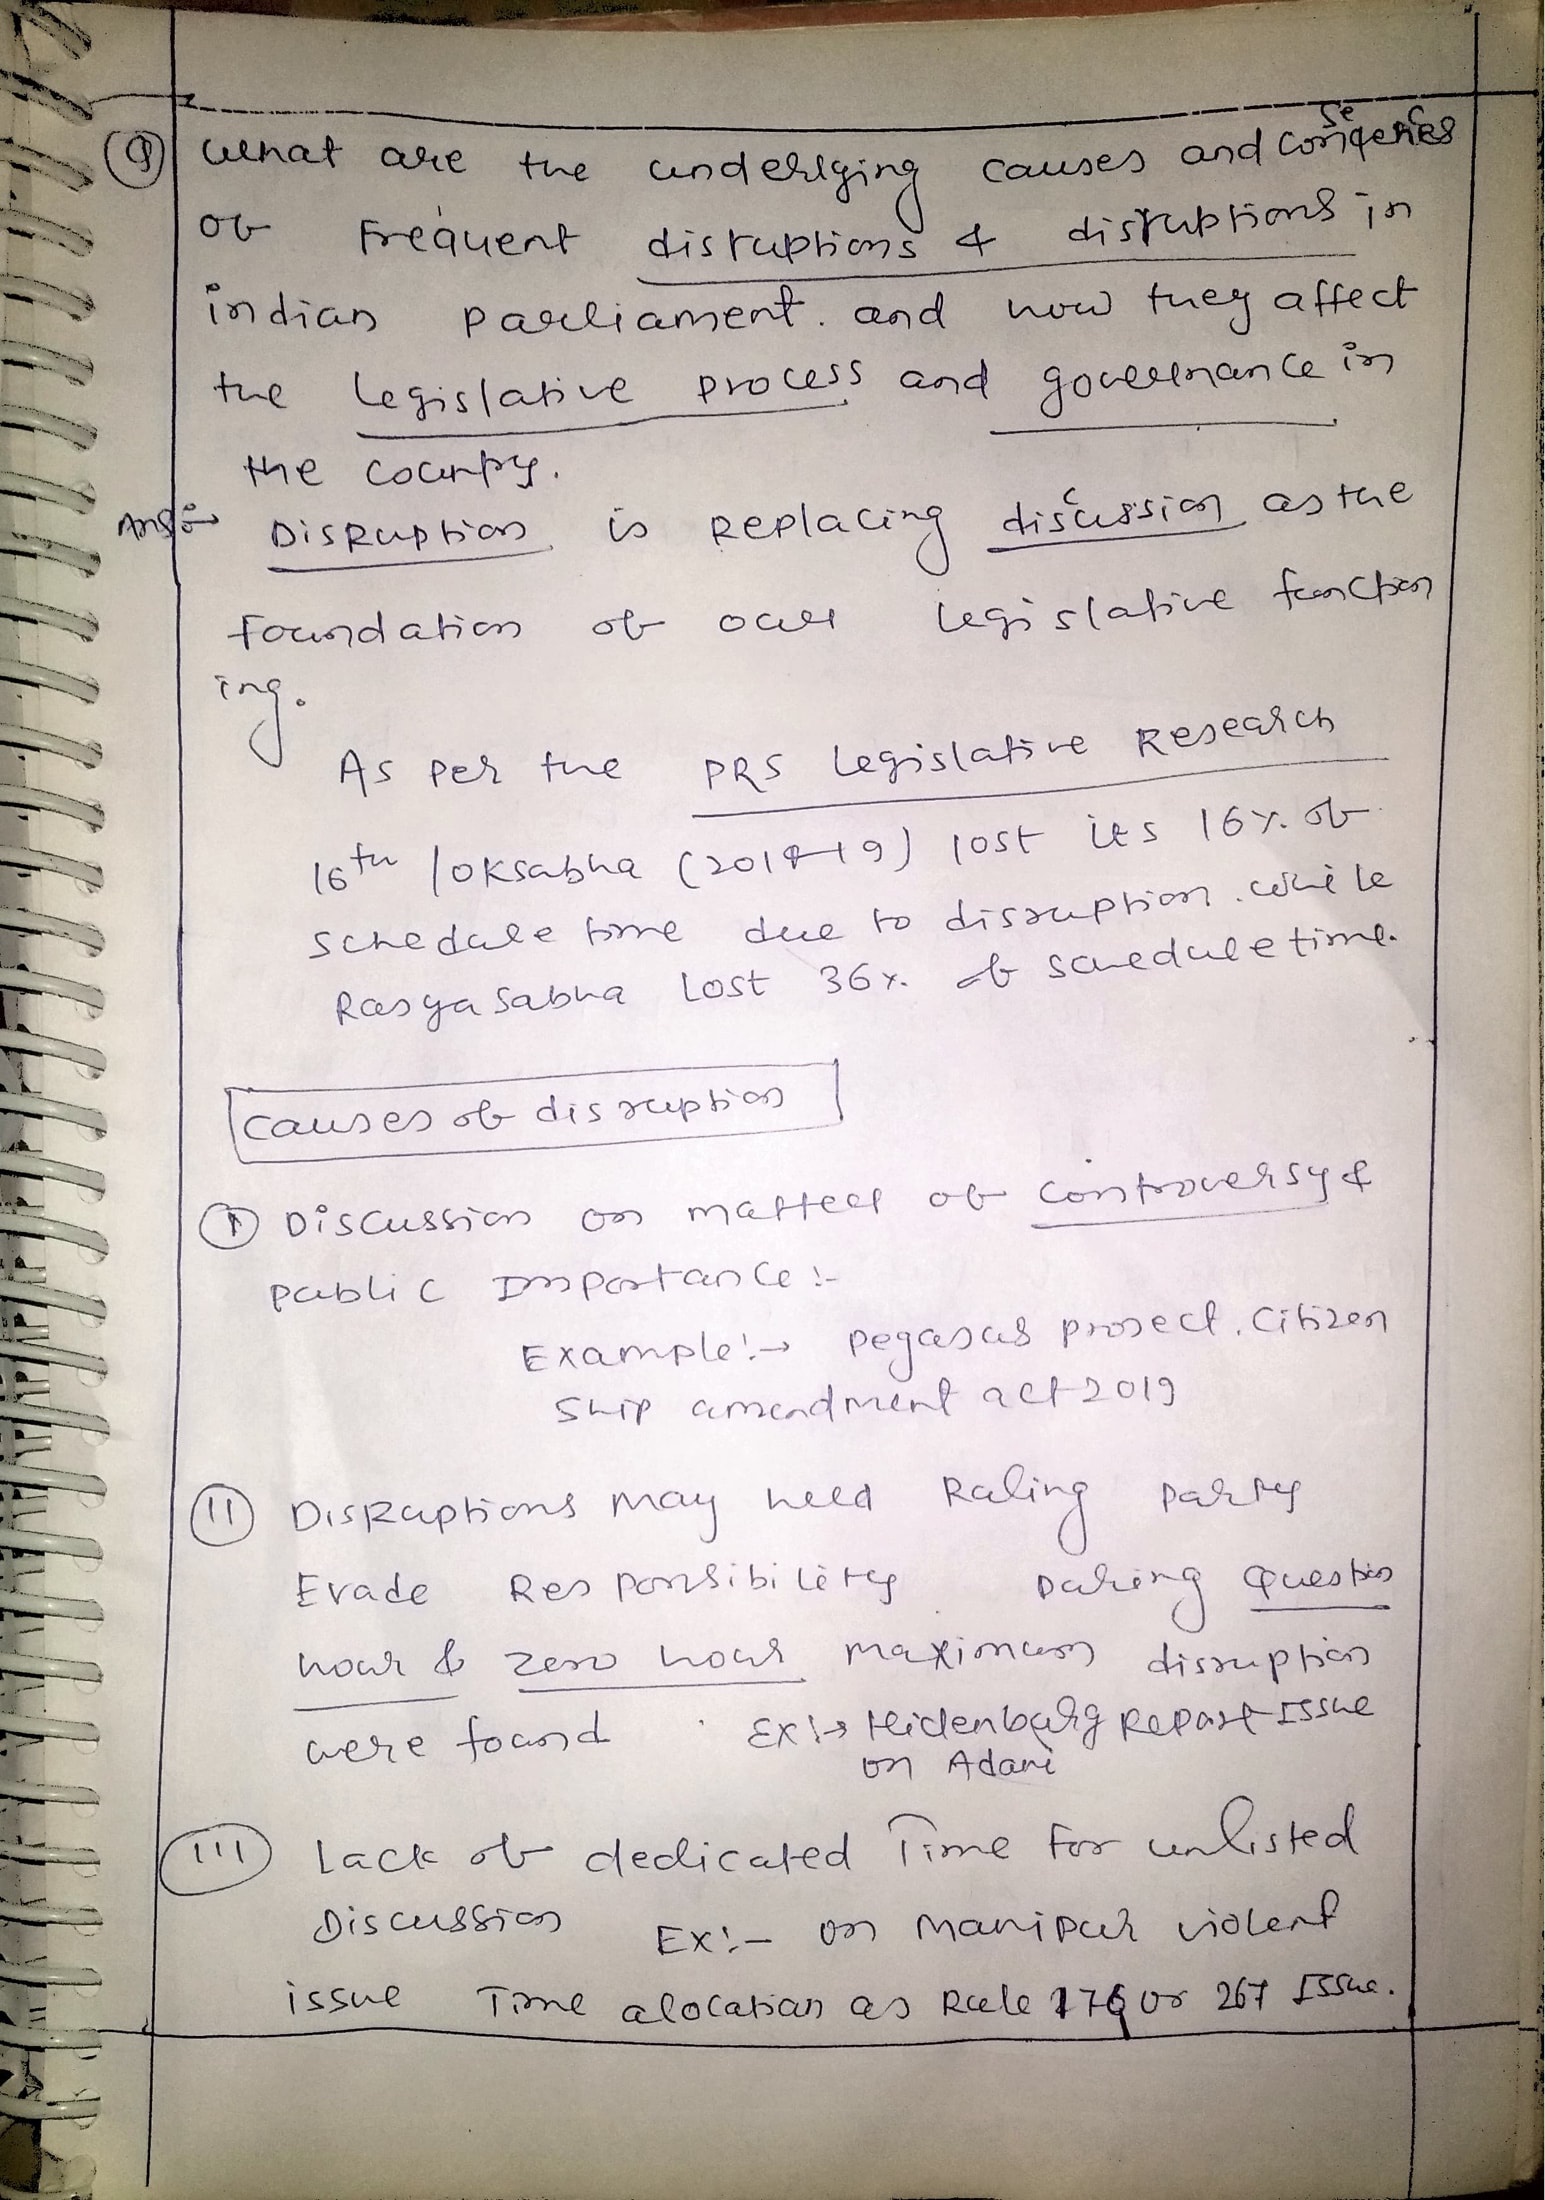 Q) What are the underlying causes and consequences
of frequent disruptions & disruptions in
indian parliament. and how they affect
the legislative process and governance in
the country.
Ans:→ Disruption is Replacing discussion as the
foundation of our legislative function
ing.
As per the PRS legislative Research
16th loksabha (2014-19) lost its 16% of
schedule time due to disruption. while
Rasya Sabha Lost 36% of schedule time.
Causes of disruption
(I) Discussion on matter of controversy &
public Importance :-
Example :→ pegasus project. Citizen
ship amendment act 2019
(II) Disruptions may held Ruling party
Evade Responsibility During Question
hour & zero hour maximum disruption
were found. Ex :→ Hidenburg Report Issue
on Adani
(III) Lack of dedicated Time for unlisted
Discussion Ex :- on manipur violent
issue Time alocation as Rule 176 or 267 Issue.